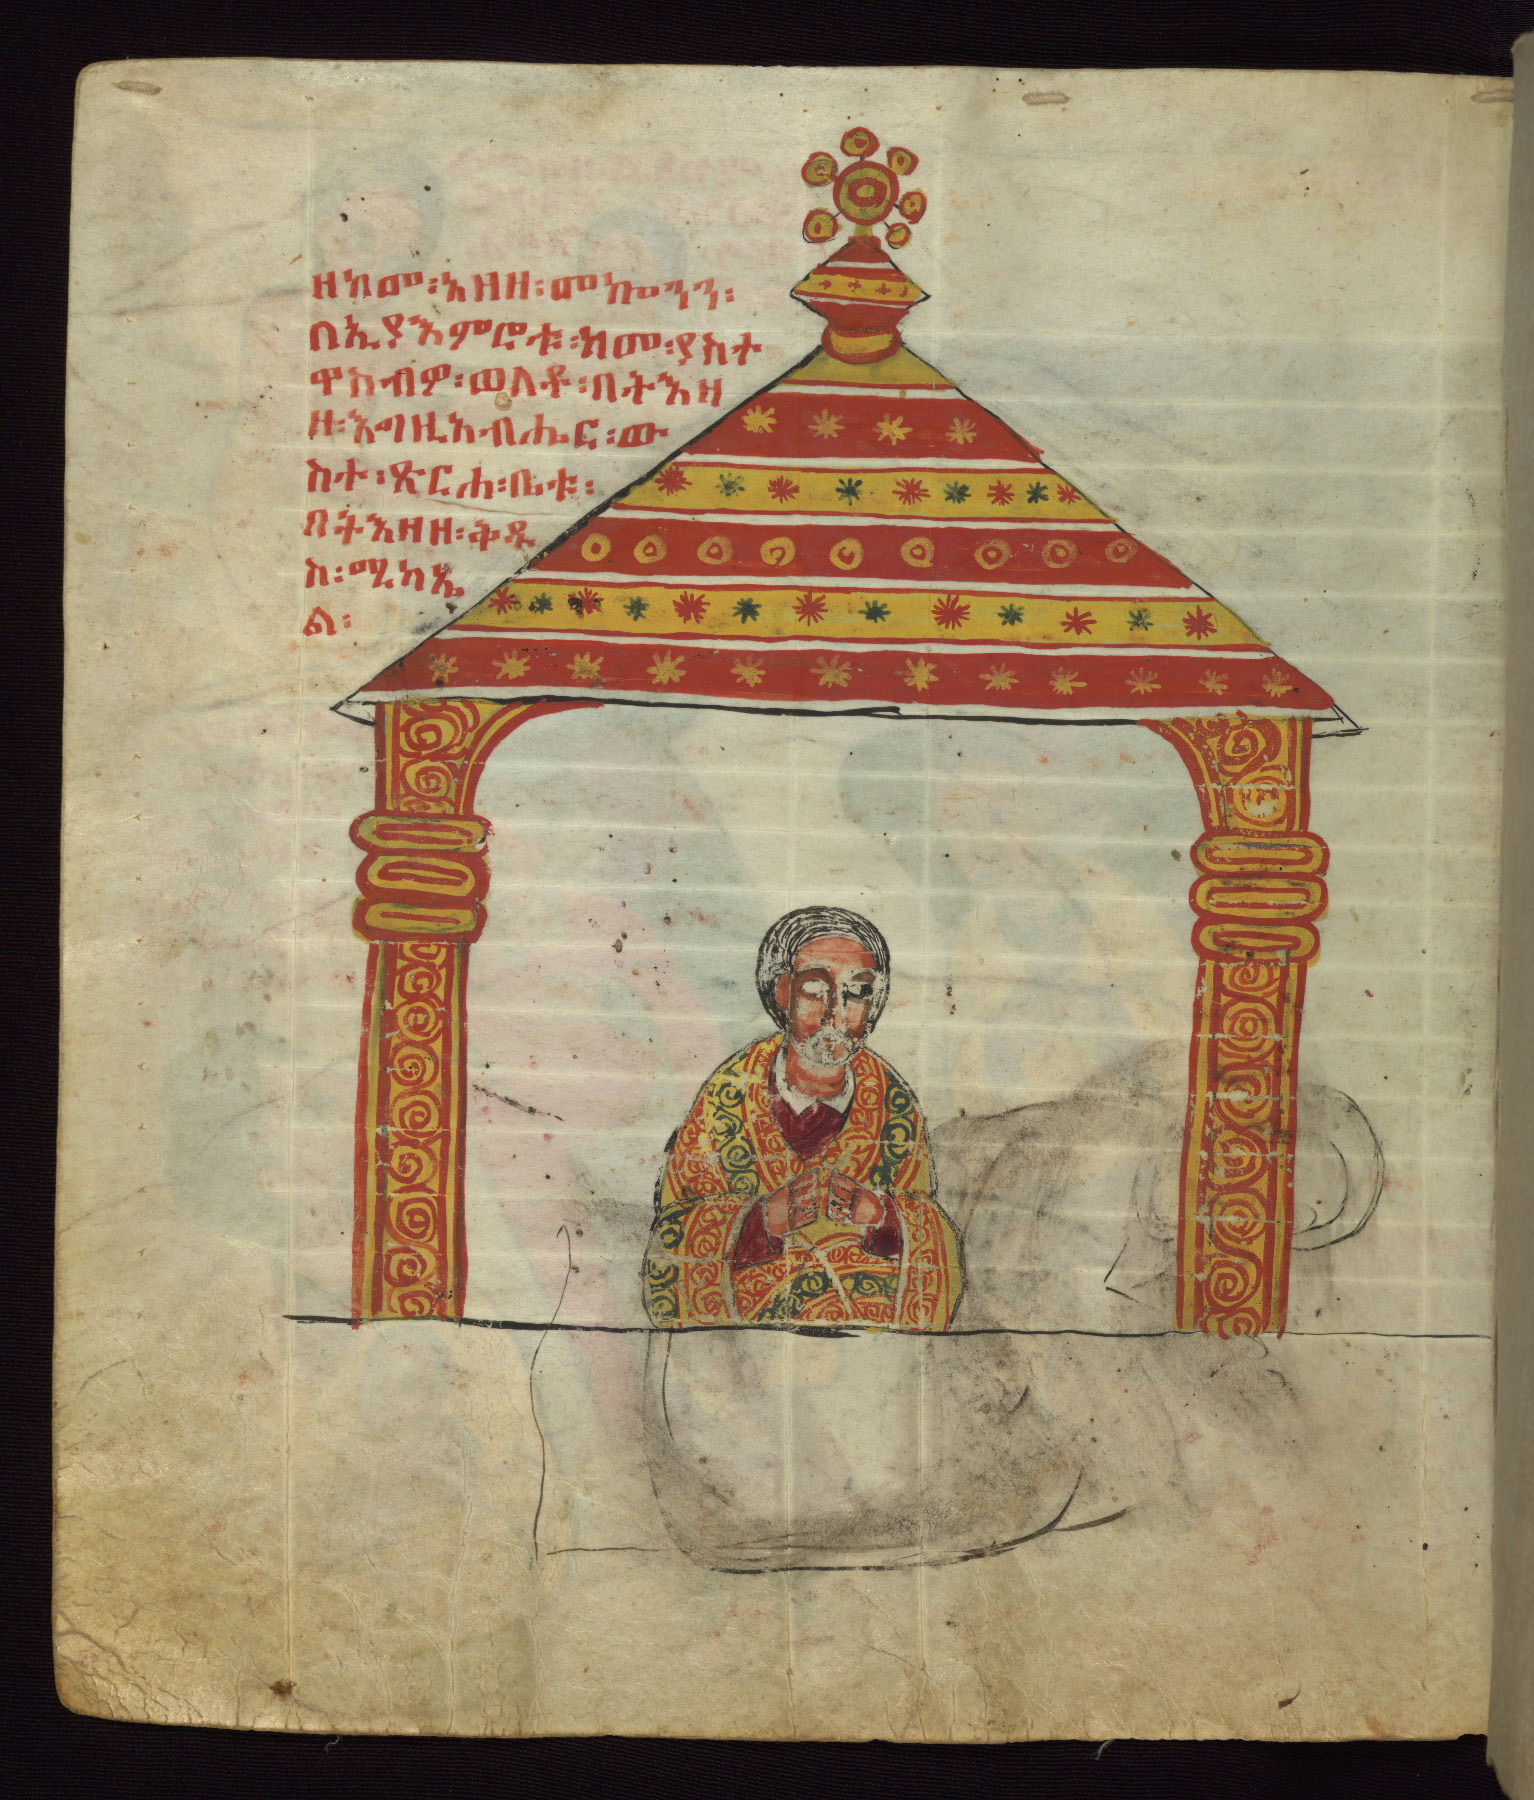 ዘከመ፡አዘዘ፡መኰንን፡
በኢያእምሮቱ፡ከመ፡ያስተ
ዋስብዎ፡ወለቶ፡በትእዛ
ዘ፡እግዚአብሔር፡ው
ስተ፡ጽርሐ፡ቤቱ፡
በትእዛዘ፡ቅዱ
ስ፡ሚካኤ
ል፡